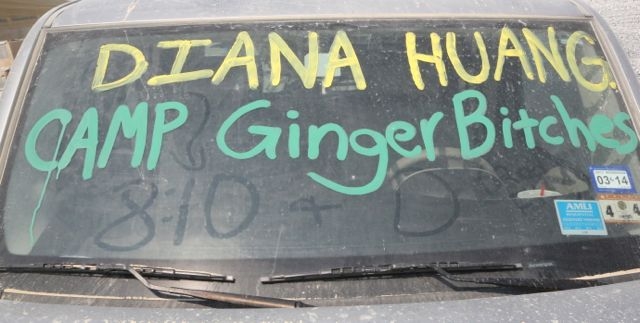 DIANA HUANG.
CAMP Ginger Bitches
8:10 - D
03 14
AMLI
4 4